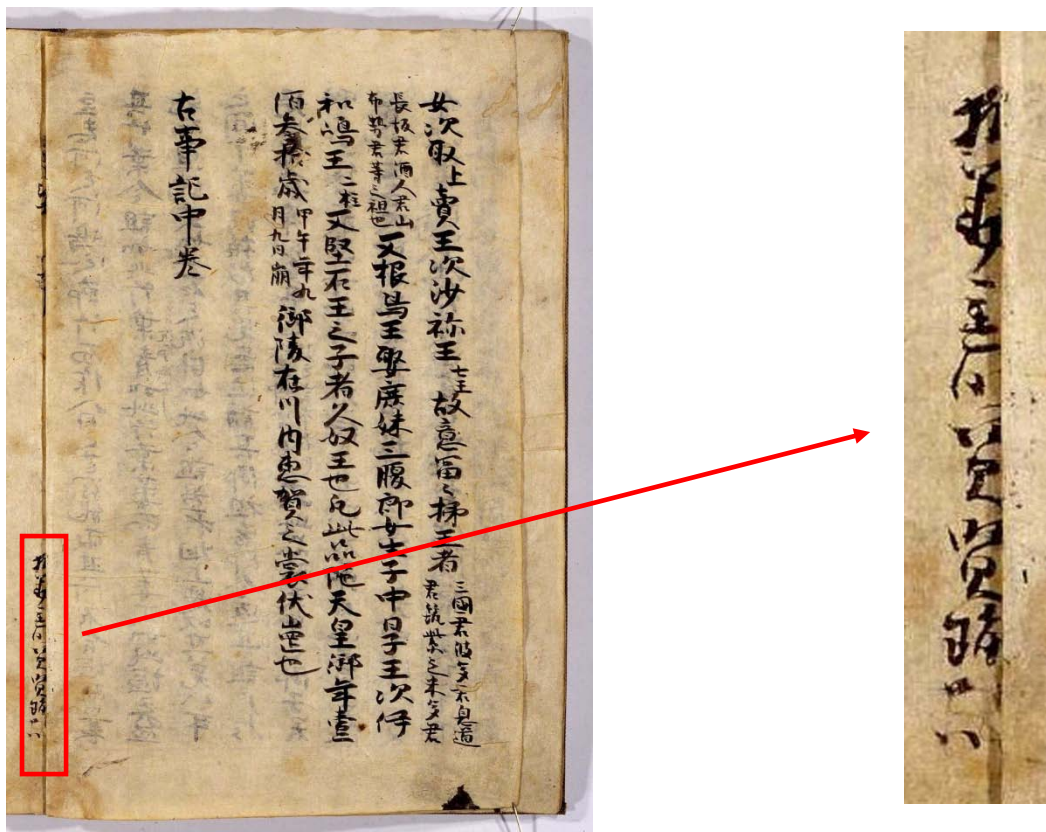 女次取上賣王次沙祢王七王故意富々梯王者三國君波多不息道
君筑紫之末多君
長坂君酒人君山
布勢君等之祖也又根鳥王娶庶妹三腹郎女生子中日子王次伊
和嶋王二柱又堅石王之子者久奴王也凡此品陀天皇御年壹
佰参拾歳甲午年九
月九日崩御陵在川内恵賀之裳伏罡也
古事記中巻
執筆主同賢瑜廿八
執筆主同賢瑜廿八